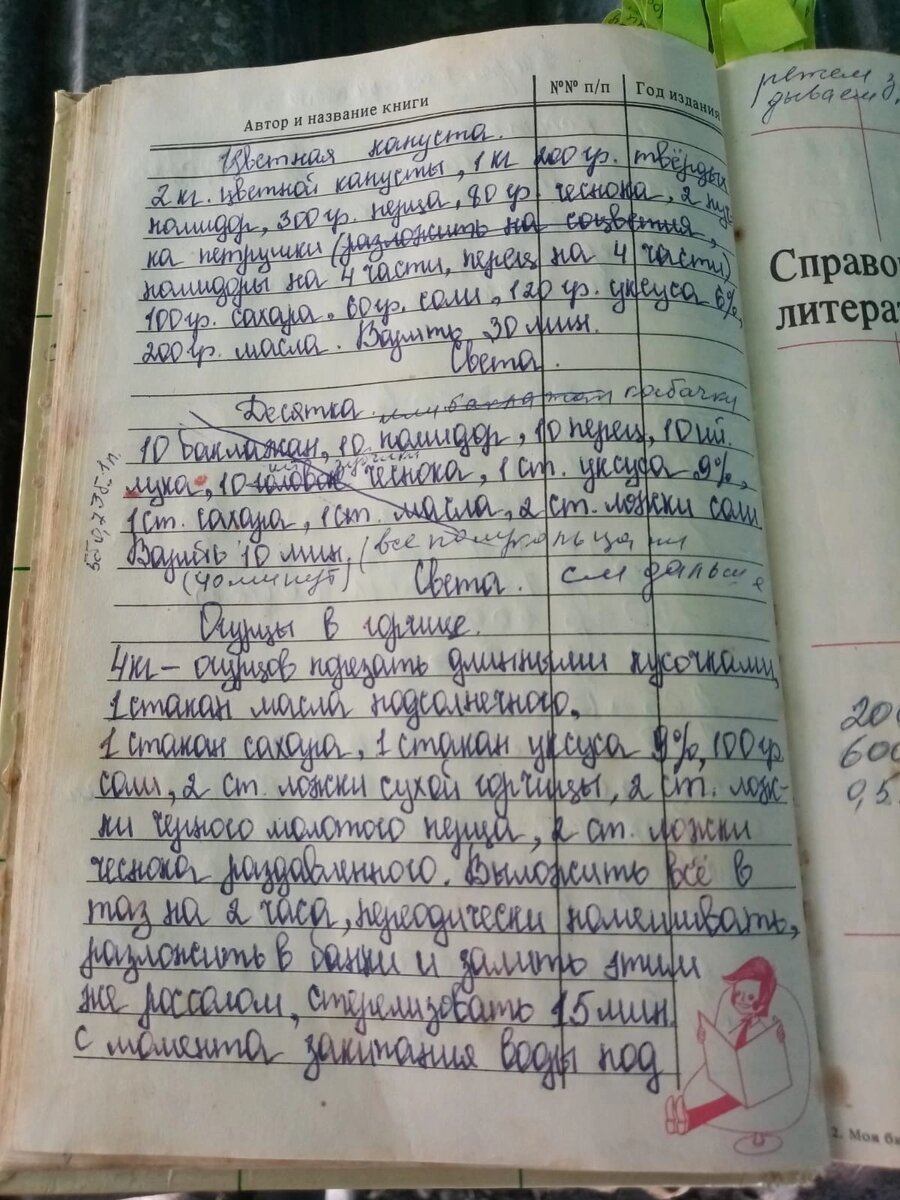 Автор и название книги
№№ п/п
Год издания
Цветная капуста.
2 кг. цветной капусты, 1 кг 200 гр. твёрдых
помидор, 300 гр. перца, 80 гр. чеснока, 2 пуч-
ка петрушки (разложить на соцветия,
помидоры на 4 части, перец на 4 части)
100 гр. сахара, 60 гр. соли, 120 гр. уксуса 6%,
200 гр. масла. Варить 30 мин.
Света.
Десятка. или баклажан кабачки
10 баклажан, 10 помидор, 10 перец, 10 шт.
лука, 10 головок чеснока, 1 ст. уксуса 9%,
1 ст. сахара, 1 ст. масла, 2 ст. ложки соли
Варить 10 мин. (все полукольцами
(40 минут) Света. см дальше
Огурцы в горчице.
4 кг – огурцов порезать длинными кусочками,
1 стакан масла подсолнечного.
1 стакан сахара, 1 стакан уксуса 9%, 100 гр
соли, 2 ст. ложки сухой горчицы, 2 ст. лож-
ки черного молотого перца, 2 ст. ложки
чеснока раздавленного. Выложить всё в
таз на 2 часа, переодически помешивать,
разложить в банки и залить этим
же россолом, стерелизовать 15 мин.
с момента закипания воды под
режем
дываем
Справо
литерат
200
600
0,5
2. Моя би